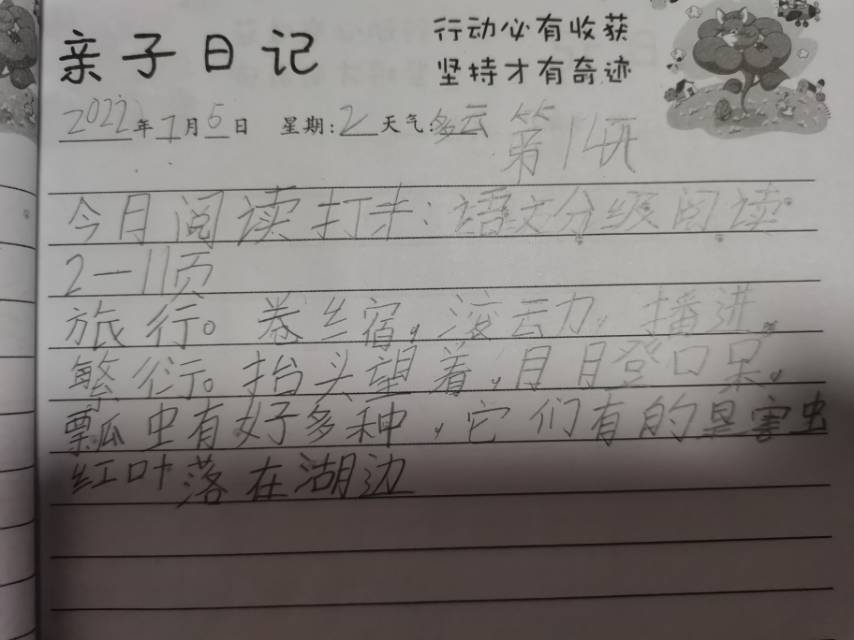 亲子日记
行动必有收获
坚持才有奇迹
2022年7月5日 星期:2 天气:多云
第14天
今月阅读打卡:语文分级阅读
2一11页
旅行。卷丝宿,滚云力,播进,
繁衍。抬头望着,月月登口呆,
瓢虫有好多种,它们有的是害虫
红叶落在湖边